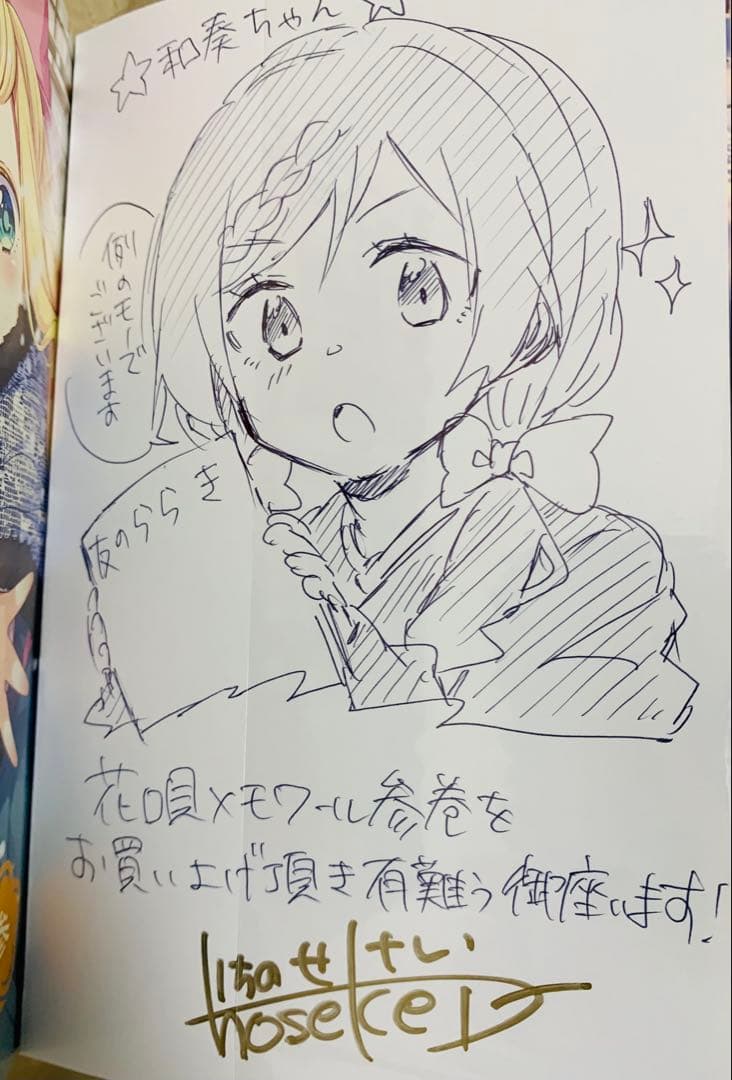 ☆和奏ちゃん☆
例のモーで
ございます
友のららき
花唄メモワール参巻を
お買い上げ頂き有難う御座います!
いちのせけい